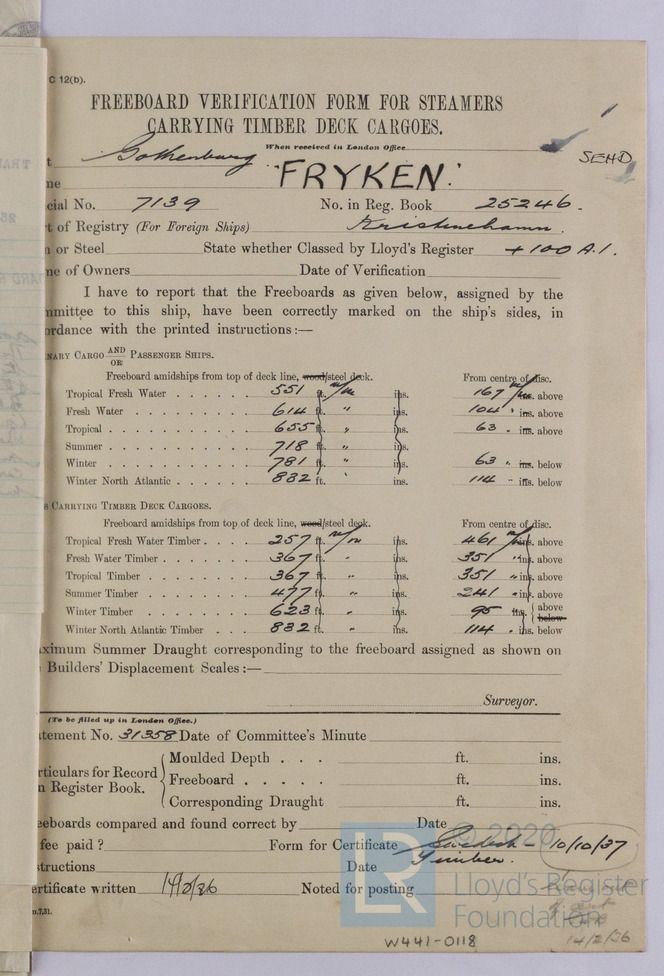 C 12(b).
FREEBOARD VERIFICATION FORM FOR STEAMERS
CARRYING TIMBER DECK CARGOES.
When received in London Office
t Gothenburg
SEND
ne "FRYKEN."
cial No. 7139 No. in Reg. Book 25246.
t of Registry (For Foreign Ships) Kristinehamn.
n or Steel State whether Classed by Lloyd's Register +100 A.1.
ne of Owners Date of Verification
I have to report that the Freeboards as given below, assigned by the
mmittee to this ship, have been correctly marked on the ship's sides, in
ordance with the printed instructions:—
NARY CARGO AND OR PASSENGER SHIPS.
Freeboard amidships from top of deck line, wood/steel deck. From centre of disc.
Tropical Fresh Water 551 ft. m/m ins. 167 m/m ins. above
Fresh Water 614 ft. " ins. 104 " ins. above
Tropical 655 ft. " ins. 63 " ins. above
Summer 718 ft. " ins.
Winter 781 ft. " ins. 63 " ins. below
Winter North Atlantic 832 ft. " ins. 114 " ins. below
S CARRYING TIMBER DECK CARGOES.
Freeboard amidships from top of deck line, wood/steel deck. From centre of disc.
Tropical Fresh Water Timber 257 ft. m/m ins. 461 m/m ins. above
Fresh Water Timber 367 ft. " ins. 351 " ins. above
Tropical Timber 367 ft. " ins. 351 " ins. above
Summer Timber 477 ft. " ins. 241 " ins. above
Winter Timber 623 ft. " ins. 95 " ins. above below
Winter North Atlantic Timber 832 ft. " ins. 114 " ins. below
ximum Summer Draught corresponding to the freeboard assigned as shown on
Builders' Displacement Scales:—
Surveyor.
(To be filled up in London Office.)
tement No. 31358 Date of Committee's Minute
Moulded Depth ft. ins.
rticulars for Record
n Register Book.
Freeboard ft. ins.
Corresponding Draught ft. ins.
eeboards compared and found correct by Date
© 2020
fee paid ? Form for Certificate Swedish - 10/10/37
Timber.
structions Date
ertificate written 14/2/36 Noted for posting
LR
Lloyd's Register
Foundation
n.7,31.
14/2/36
W441-0118